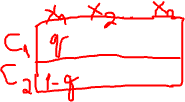 x₁ x₂ x₃
C₁ q
C₂ 1-q